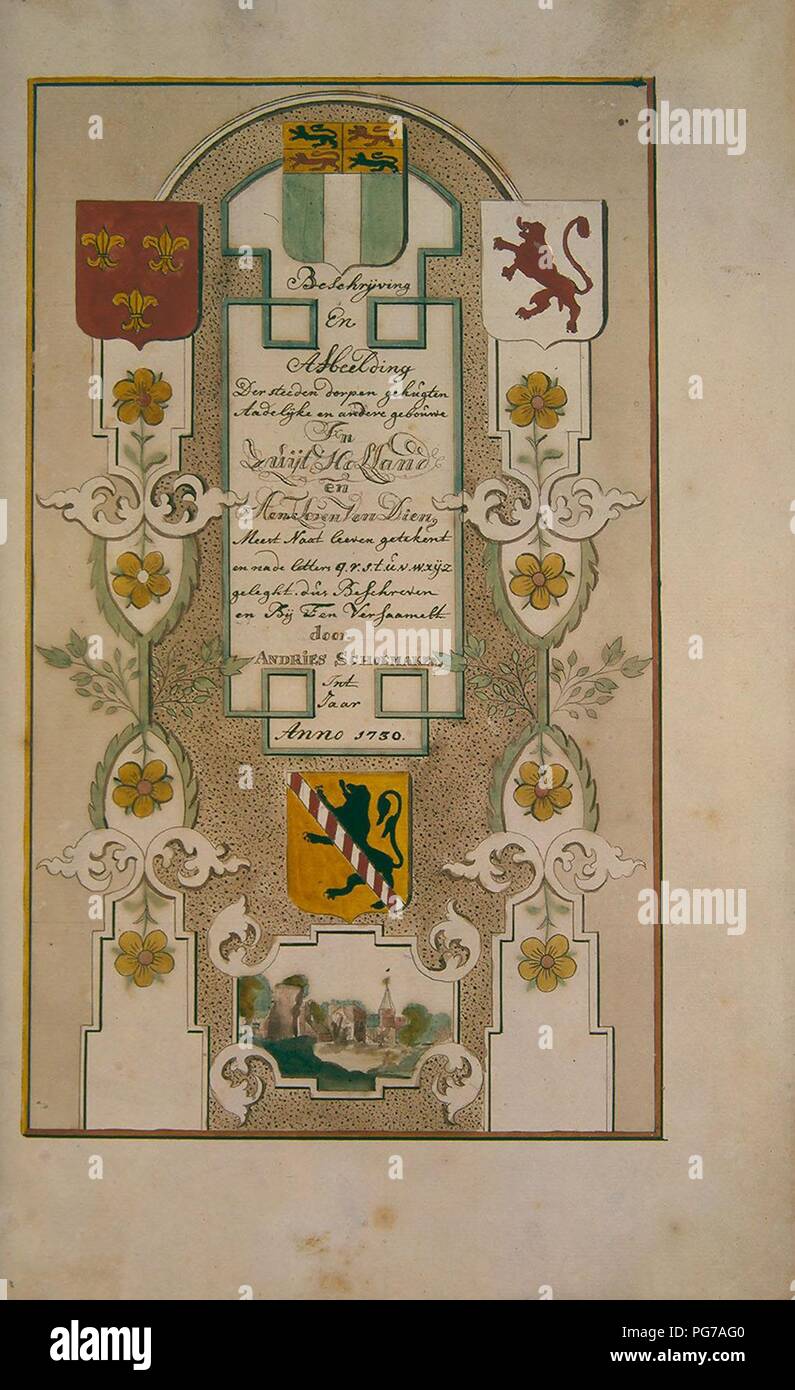 Beschrijving
En
Afbeelding
Der steeden dorpen gehugten
Aadelijke en andere gebouwe
In
Zuijt Holland
en
Meest Naat leeven getekent
en na de letters q.r.s.t.u.v.w.x.ij.z
geleght. dus Beschreven
en Bij Een Versaamelt
door
ANDRIES SCHOEMAKER
Int
Jaar
Anno 1730.
alamy
Image ID: PG7AG0
www.alamy.com